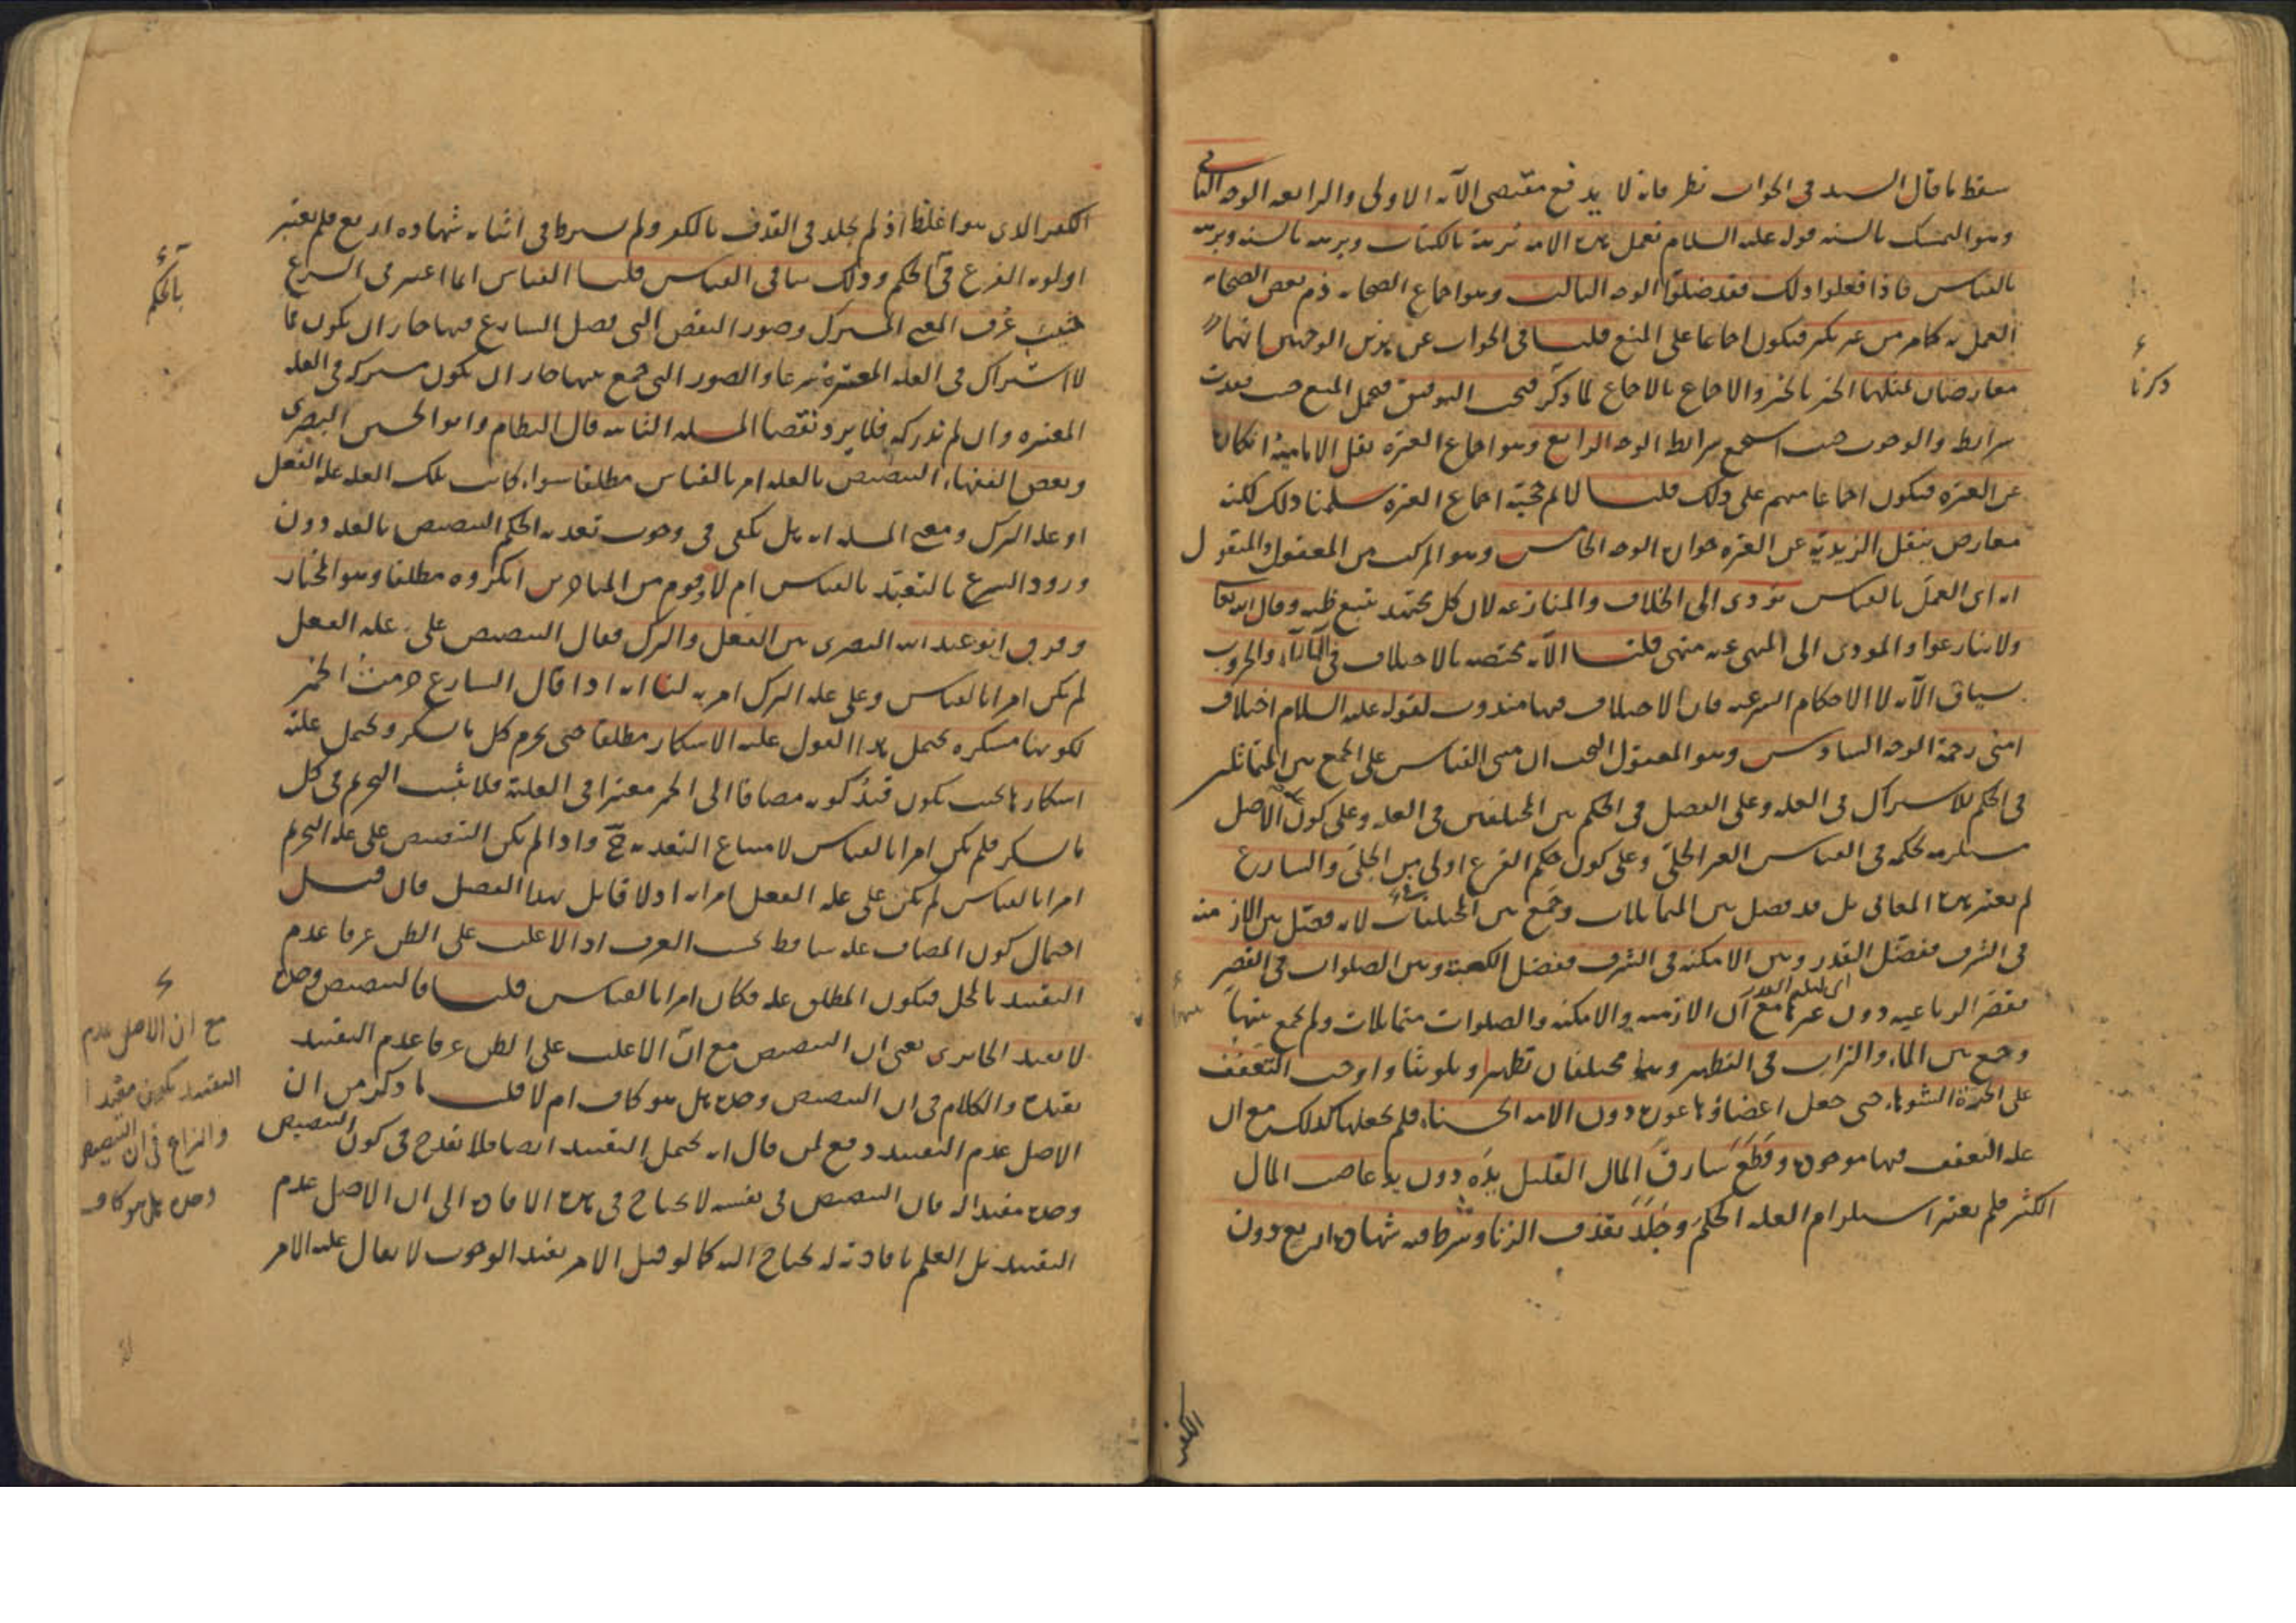 سقط ما قال السيد في الجواب نظر فانه لا يدفع مقتضى الآية الاولى والرابعة الوجه الثاني
وهو التمسك بالسنة قوله عليه السلام تعمل هذه الامة برهة بالكتاب وبرهة بالسنة وبرهة
بالقياس فاذا فعلوا ذلك فقد ضلوا الوجه الثالث وهو اجماع الصحابة ذم بعض الصحابة
العمل به كما مر من غير نكير فيكون اجماعا على المنع قلنا في الجواب عن هذين الوجهين انهما
معارضان بمثلهما الخبر بالخبر والاجماع بالاجماع لما ذكر فيجب التوفيق فيحمل المنع حيث فقدت
شرايط والوجوب حيث استجمع شرايط الوجه الرابع وهو اجماع العترة نقل الامامية انكاره
عن العترة فيكون اجماعا منهم على ذلك قلنا لا نم حجية اجماع العترة سلمنا ذلك لكنه
معارض بنقل الزيدية عن العترة جوازه الوجه الخامس وهو المركب من المعقول والمنقول
انه اى العمل بالقياس يؤدى الى الخلاف والمنازعة لان كل مجتهد يتبع ظنه وقال الله تعالى
ولا تنازعوا والمودى الى المنهى عنه منهى قلنا الآية مختصة بالاختلاف في الآراء والحروب
سياق الآية لا الاحكام الشرعية فان الاختلاف فيها مندوب لقوله عليه السلام اختلاف
امتى رحمة الوجه السادس وهو المعقول البحت ان مبنى القياس على الجمع بين المتماثلين
في الحكم للاشتراك في العلة وعلى الفصل في الحكم بين المختلفين في العلة وعلى كون الاصل
مستلزمة لحكمه في القياس الغير الجلى وعلى كون حكم الفرع اولى من الجلى والشارع
لم يعتبر هذه المعانى بل قد فصل بين المتماثلات وجمع بين المختلفات لانه فصل بين الازمنة
في الشرف ففضل القدر وبين الامكنة في الشرف ففضل الكعبة وبين الصلوات في القصر
اى ليلة القدر
فقصر الرباعية دون غيرها مع ان الازمنة والامكنة والصلوات متماثلات ولم يجمع بينها
وجمع بين الماء والتراب في التطهير وهما مختلفان تطهيرا وتلويثا واوجب التعفف
على الحرة الشوهاء حتى جعل اعضاؤها عورة دون الامة الحسناء فلم يجعلها كذلك مع ان
علة التعفف فيها موجودة وقطع سارق المال القليل يده دون يد غاصب المال
الكثير فلم يعتبر استلزام العلة الحكم وجلد بقذف الزنا وشرط فيه شهادة اربع دون
الكفر
ذكرنا
الكفر الذى هو اغلظ اذ لم يجلد في القذف بالكفر ولم يشرط في اثباته شهادة اربع فلم يعتبر
اولوية الفرع في الحكم وذلك ينافى القياس قلنا القياس انما اعتبر في الشرع
حيث عرف المعنى المشترك وصور النقض التى فصل الشارع فيها جاز ان يكون مما
لا اشتراك في العلة المعتبرة شرعا والصور التى جمع بينها جاز ان يكون مشتركة في العلة
المعتبرة وان لم ندركه فلا يرد نقضا المسئلة الثانية قال النظام وابو الحسين البصرى
وبعض الفقهاء التنصيص بالعلة امر بالقياس مطلقا سواء كانت تلك العلة علة الفعل
او علة الترك ومعنى المسئلة انه هل يكفى في وجوب تعدية الحكم التنصيص بالعلة دون
ورود الشرع بالتعبد بالقياس ام لا وقوم من المتاخرين انكروه مطلقا وهو المختار
وفرق ابو عبد الله البصرى بين الفعل والترك فقال التنصيص على علة الفعل
لم يكن امرا بالقياس وعلى علة الترك امر به لنا انه اذا قال الشارع حرمت الخمر
لكونها مسكرة يحتمل هذا القول علية الاسكار مطلقا حتى يحرم كل ما يسكر ويحتمل علية
اسكارها بحيث يكون قيد كونه مضافا الى الخمر معتبرا في العلية فلا يثبت التحريم في كل
ما يسكر فلم يكن امرا بالقياس لامتناع التعدية ح واذا لم يكن التنصيص على علة التحريم
امرا بالقياس لم يكن على علة الفعل امرا به اذ لا قايل بهذا الفصل فان قيل
احتمال كون المضاف علة ساقط بحسب العرف اذ الاغلب على الظن عرفا عدم
التقييد بالمحل فيكون المطلق علة فكان امرا بالقياس قلنا فالتنصيص وحده
لا يفيد الجابردى يعنى ان التنصيص مع ان الاغلب على الظن عرفا عدم التقييد
يفيده والكلام في ان التنصيص وحده هل هو كاف ام لا قلت ما ذكر من ان
الاصل عدم التقييد دفع لمن قال انه يحتمل التقييد ايضا فلا يقدح في كون التنصيص
وحده مفيدا له فان التنصيص في نفسه لا يحتاج في هذه الافادة الى ان الاصل عدم
التقييد بل العلم بافادته له يحتاج اليه كما لو قيل الامر يفيد الوجوب لا يقال علية الامر
بالحكم
مع ان الاصل عدم
التقييد يكون مقيدا
والنزاع في ان التنصيص
وحده هل هو كاف